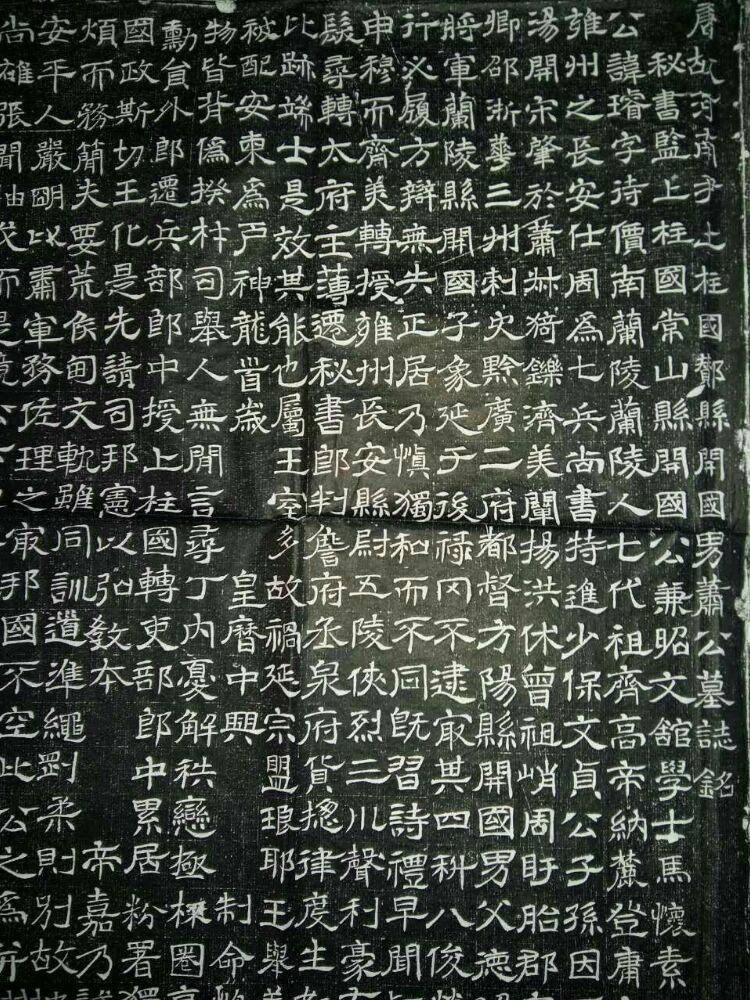 唐故河南尹上柱國酇縣開國男蕭公墓誌銘
秘書監上柱國常山縣開國公兼昭文館學士馬懷素
公諱璿字待價南蘭陵蘭陵人七代祖齊高帝納麓登庸
雍州之長安仕周為七兵尚書特進少保文貞公子孫因
湯開宋肇於蕭猗鑠濟美闡揚洪休曾祖峭周盱胎郡
卿邵浙夔三州刺史黔廣二府都督方陽縣開國男父德
將軍蘭陵縣開國子象延于後祿罔不逮冣其四科八俊
行必履方辯無失正居乃慎獨和而不同旣習詩禮早聞
申穆而齊美轉授雍州長安縣尉五陵俠烈三川聲利豪
髮尋轉太府主薄遷秘書郎判詹府丞泉府貨摠律度生
比跡端士是效其能也屬王室多故禍延宗盟琅耶王舉
被配安東為戶神龍首歲 皇曆中興 制命
物皆背偽揆材司舉人無閒言尋丁內憂解袟戀極圈
勳員外郎遷兵部郎中授上柱國轉吏部郎中累居粉署獨
國政斯切王化是先請司邦憲以弘教本 帝嘉乃
煩而務簡夫要荒侯甸文軌雖同訓準繩剛柔則別故
安平人嚴明以肅軍務佐理之冣邦國不空此公之為
尚雄張聞